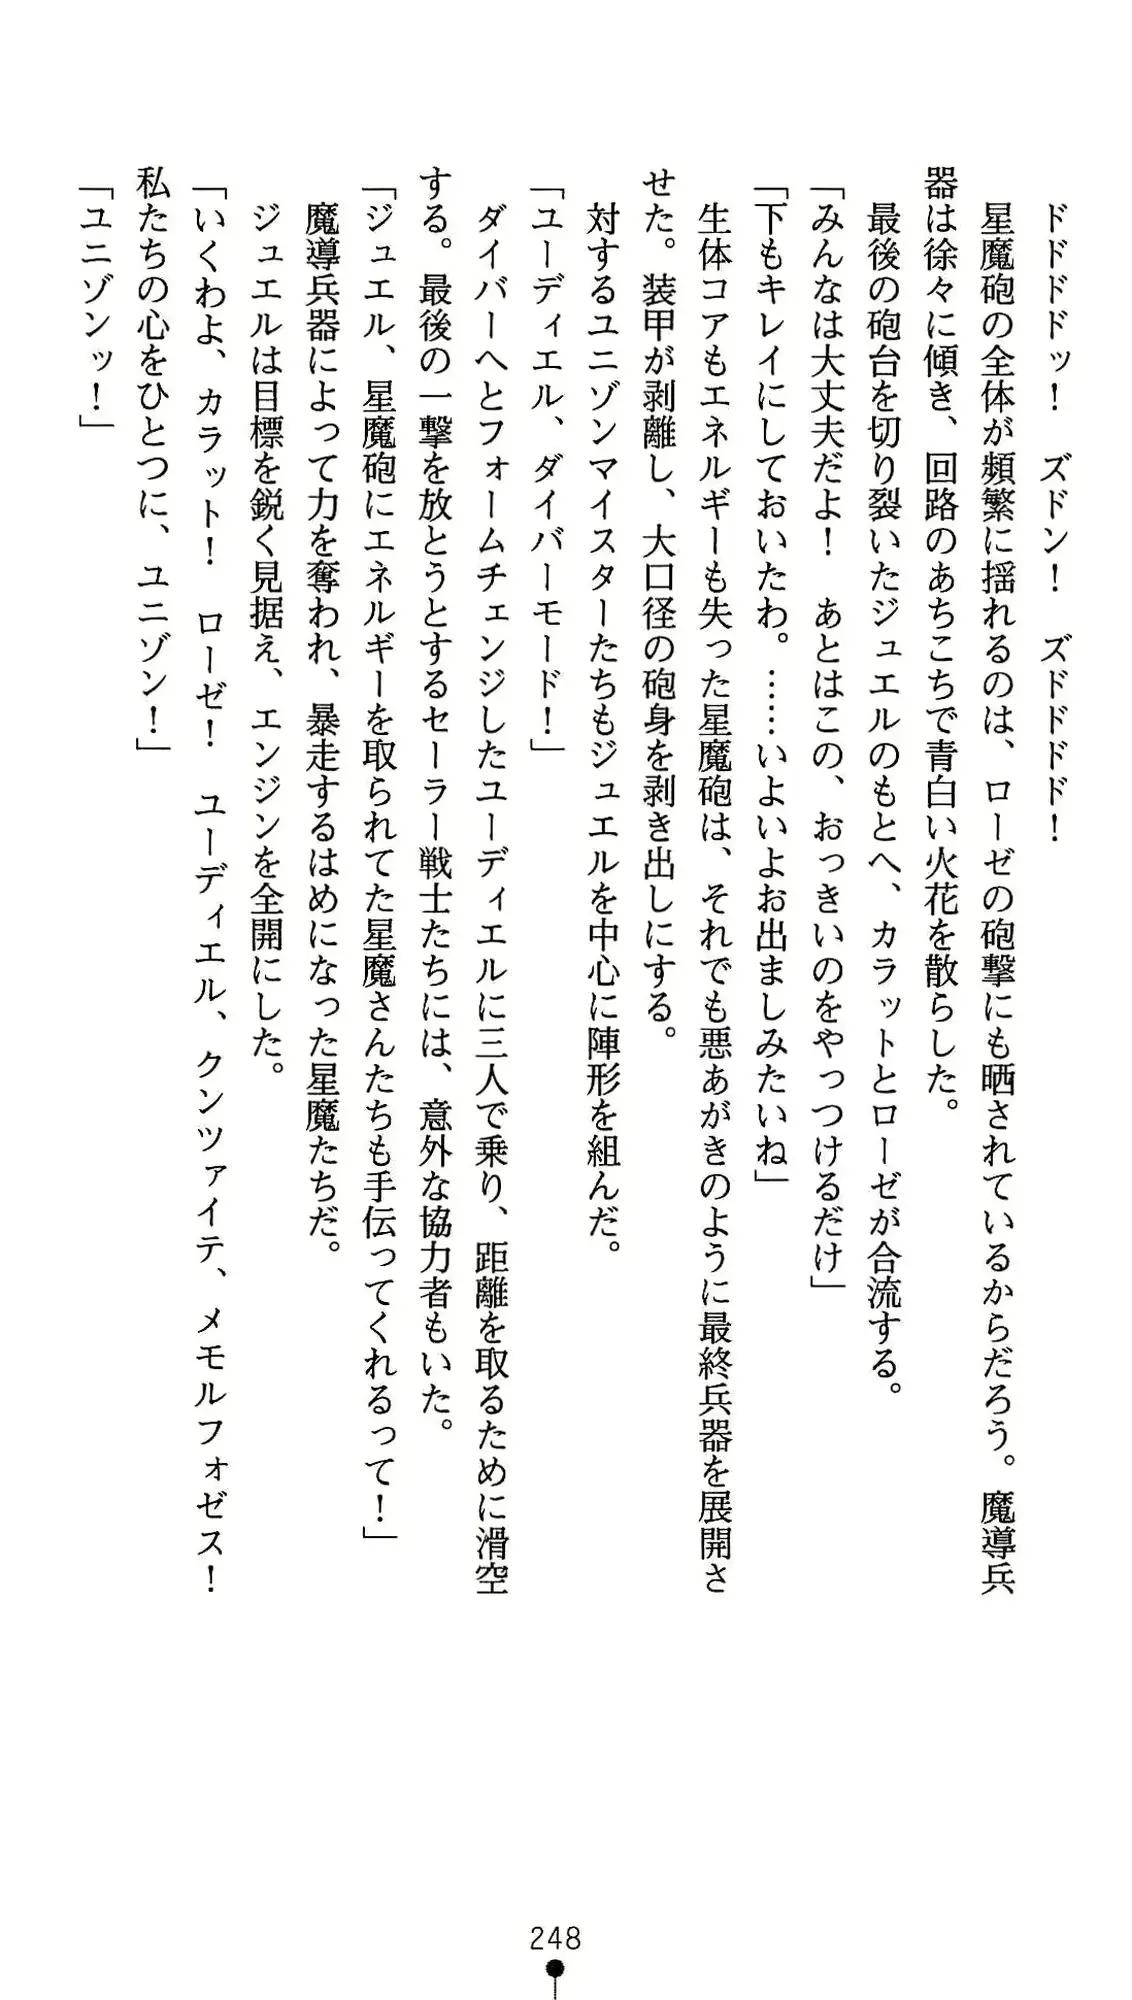 ドドドドッ！　ズドン！　ズドドドド！
星魔砲の全体が頻繁に揺れるのは、ローゼの砲撃にも晒されているからだろう。魔導兵
器は徐々に傾き、回路のあちこちで青白い火花を散らした。
最後の砲台を切り裂いたジュエルのもとへ、カラットとローゼが合流する。
「みんなは大丈夫だよ！　あとはこの、おっきいのをやっつけるだけ」
「下もキレイにしておいたわ。……いよいよお出ましみたいね」
生体コアもエネルギーも失った星魔砲は、それでも悪あがきのように最終兵器を展開さ
せた。装甲が剥離し、大口径の砲身を剥き出しにする。
対するユニゾンマイスターたちもジュエルを中心に陣形を組んだ。
「ユーディエル、ダイバーモード！」
ダイバーへとフォームチェンジしたユーディエルに三人で乗り、距離を取るために滑空
する。最後の一撃を放とうとするセーラー戦士たちには、意外な協力者もいた。
「ジュエル、星魔砲にエネルギーを取られてた星魔さんたちも手伝ってくれるって！」
魔導兵器によって力を奪われ、暴走するはめになった星魔たちだ。
ジュエルは目標を鋭く見据え、エンジンを全開にした。
「いくわよ、カラット！　ローゼ！　ユーディエル、クンツァイテ、メモルフォゼス！
私たちの心をひとつに、ユニゾン！」
「ユニゾンッ！」
248